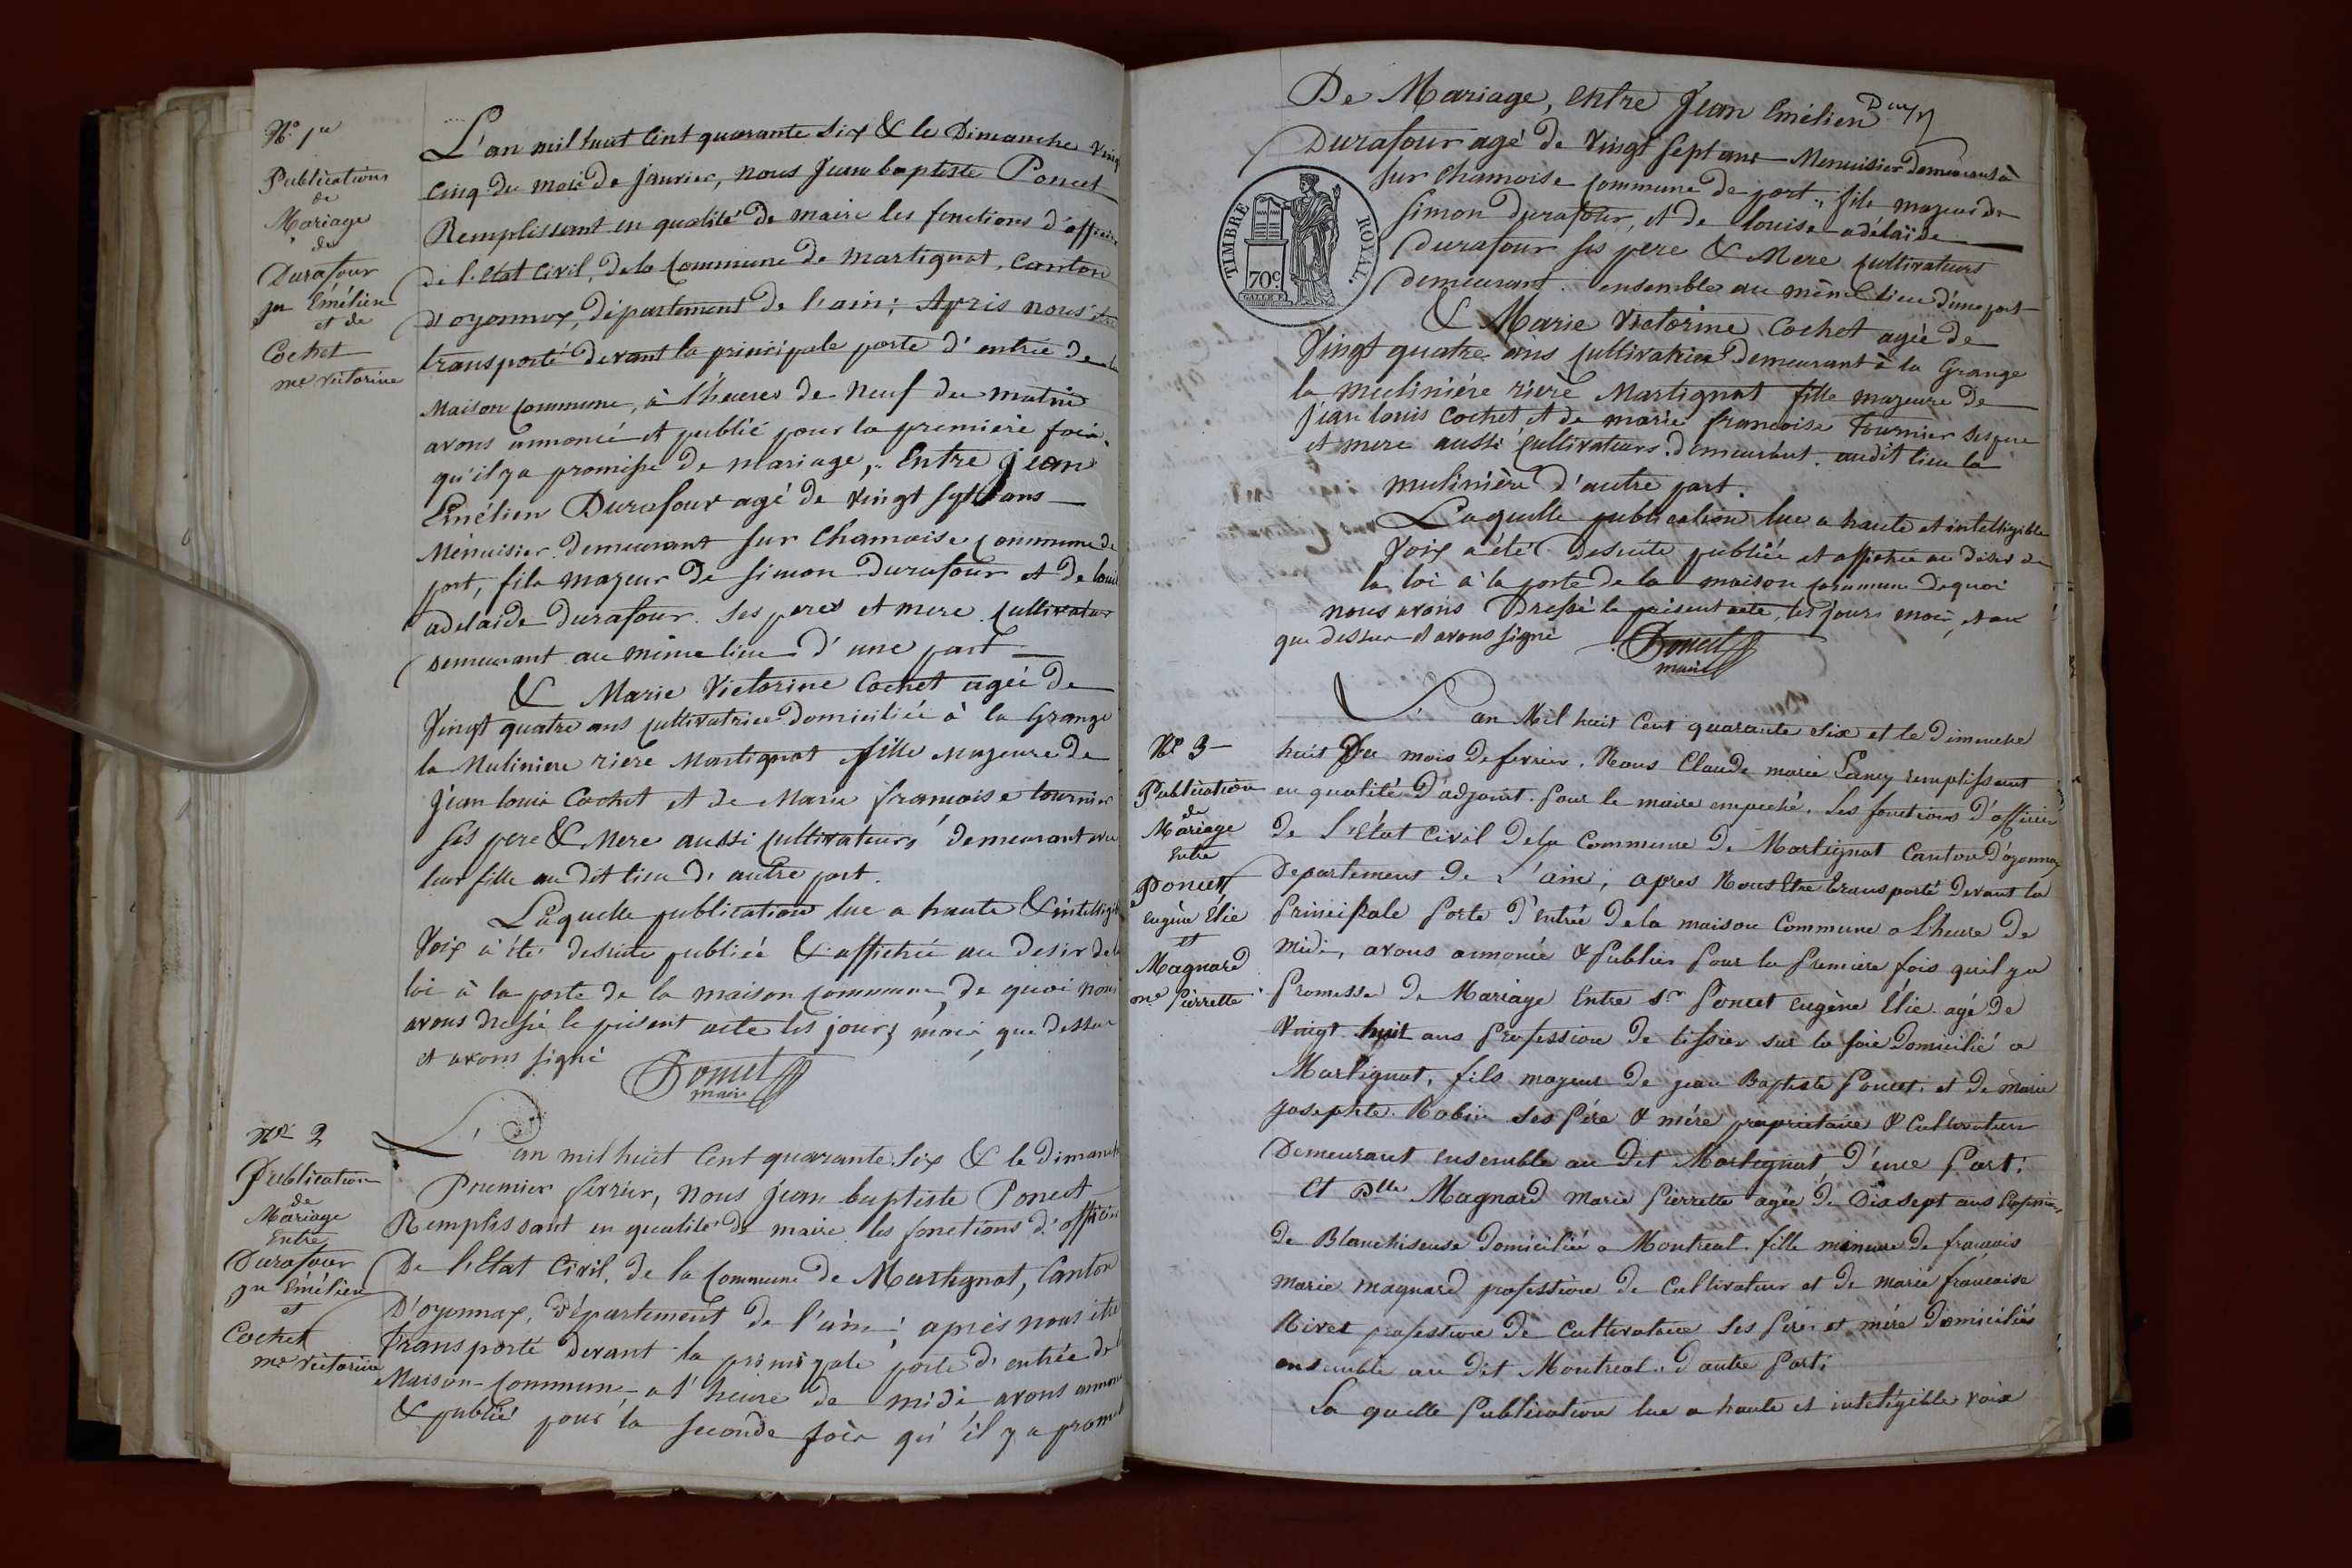 N.º 1er
Publications
de
Mariage
de
Durafour
jn Emélien
et de
Cochet
me victorine
L'an mil huit Cent quarante six & le Dimanche Vingt
Cinq du mois de Janvier, nous Jean baptiste Poncet
Remplissant en qualité de maire les fonctions d'officier
de l'état Civil, de la Commune de Martignat, Canton
d'oyonnax, département de l'ain; Après nous être
transporté devant la principale porte d'entrée de la
Maison Commune, à l'heures de Neuf du matin
avons annoncé et publié pour la première fois
qu'il y a promesse de mariage, Entre Jean
Emélien Durafour agé de Vingt sept ans
Ménuisier demeurant sur Chamoise Commune de
port, fils majeur de Simon Durafour et de louise
adelaide durafour ses peres et mere Cultivateur
demeurant au même lieu d'une part
& Marie Victorine Cochet agée de
Vingt quatre ans Cultivatrice domiciliée à la Grange
la Muliniere riere Martignat fille Majeure de
Jean louis Cochet et de Marie francoise tournier
ses pere & Mere aussi Cultivateurs demeurant avec
leur fille au dit lieu d'autre part.
Laquelle publication lue a haute & intelligible
Voix à été desuite publiée & affichée au desir de la
loi à la porte de la maison commune, de quoi nous
avons dressé le présent acte les jours mois que dessus
et avons signé
Poncet
maire
Nº 2
Publication
de
Mariage
Entre
Durafour
jn Emélien
et
Cochet
me Victorine
L'an mil huit Cent quarante six & le dimanche
Premier fevrier, nous Jean baptiste Poncet
Remplissant en qualité de maire les fonctions d'officier
De l'Etat Civil, de la Commune de Martignat, Canton
D'oyonnax, département de l'ain; après nous être
Transporté devant la principale porte d'entrée de la
Maison Commune a l'heure de midi avons annoncé
& publié pour la seconde fois qu'il y a promesse
De Mariage, Entre Jean Emélien
Durafour agé de Vingt sept ans Menuisier demeurant à
sur Chamoise Commune de port, fils majeur de
Simon durafour, et de louise adélaïde
durafour ses pere & Mere cultivateurs
demeurant ensemble au même lieu d'une part
TIMBRE ROYAL.
70c.
& Marie Victorine Cochet agée de
Vingt quatre ans Cultivatrice demeurant à la Grange
la mulinière rière Martignat fille majeure de
Jean louis Cochet et de marie francoise Tournier ses pere
et mere aussi cultivateurs demeurant audit lieu la
mulinière d'autre part.
Laquelle publication lue a haute et intelligible
Voix a été desuite publiée et affichée au désir de
la loi à la porte de la maison commune dequoi
nous avons Dressé le présent acte, les jours mois, et an
que dessus et avons signé
Poncet
maire
Nº 3
Publication
de
Mariage
Entre
Poncet
eugène Elie
et
Magnard
me Pierrette
L'an Mil huit Cent quarante Six et le Dimanche
huit Du mois de fevrier. Nous Claude marie Lancy remplissant
en qualité d'adjoint Pour le maire empeché, Les fonctions d'officier
de L'Etat Civil dela Commune de Martignat Canton D'oyonnax
Departement de L'ain, apres Nous Etre transporté devant la
Principale Porte d'Entrée Dela maison Commune a L'heure de
midi, avons annoncé & Publier Pour la Premiere fois quil ya
Promesse de Mariage Entre Sr Poncet Eugène Élie agé de
Vingt huit ans Profession de tissier sur la soie Domicilié a
Martignat, fils majeur de jean Baptiste Poncet, et de marie
josephte Robin ses Pére & mére proprietaire & Cultivateur
Demeurant ensemble au dit Martignat, D'une Part.
Et Dlle Magnard marie Pierrette agée de Dix sept ans Profession
de Blanchiseuse Domiciliée a Montreal fille mineure de francois
marie magnard profession de Cultivateur et de marie francoise
Nivet profession de Cultivatrice ses Pére et mére Domiciliés
ensemble au dit Montreal, D'autre Part.
La quelle Publication lue a haute et intelégible voix